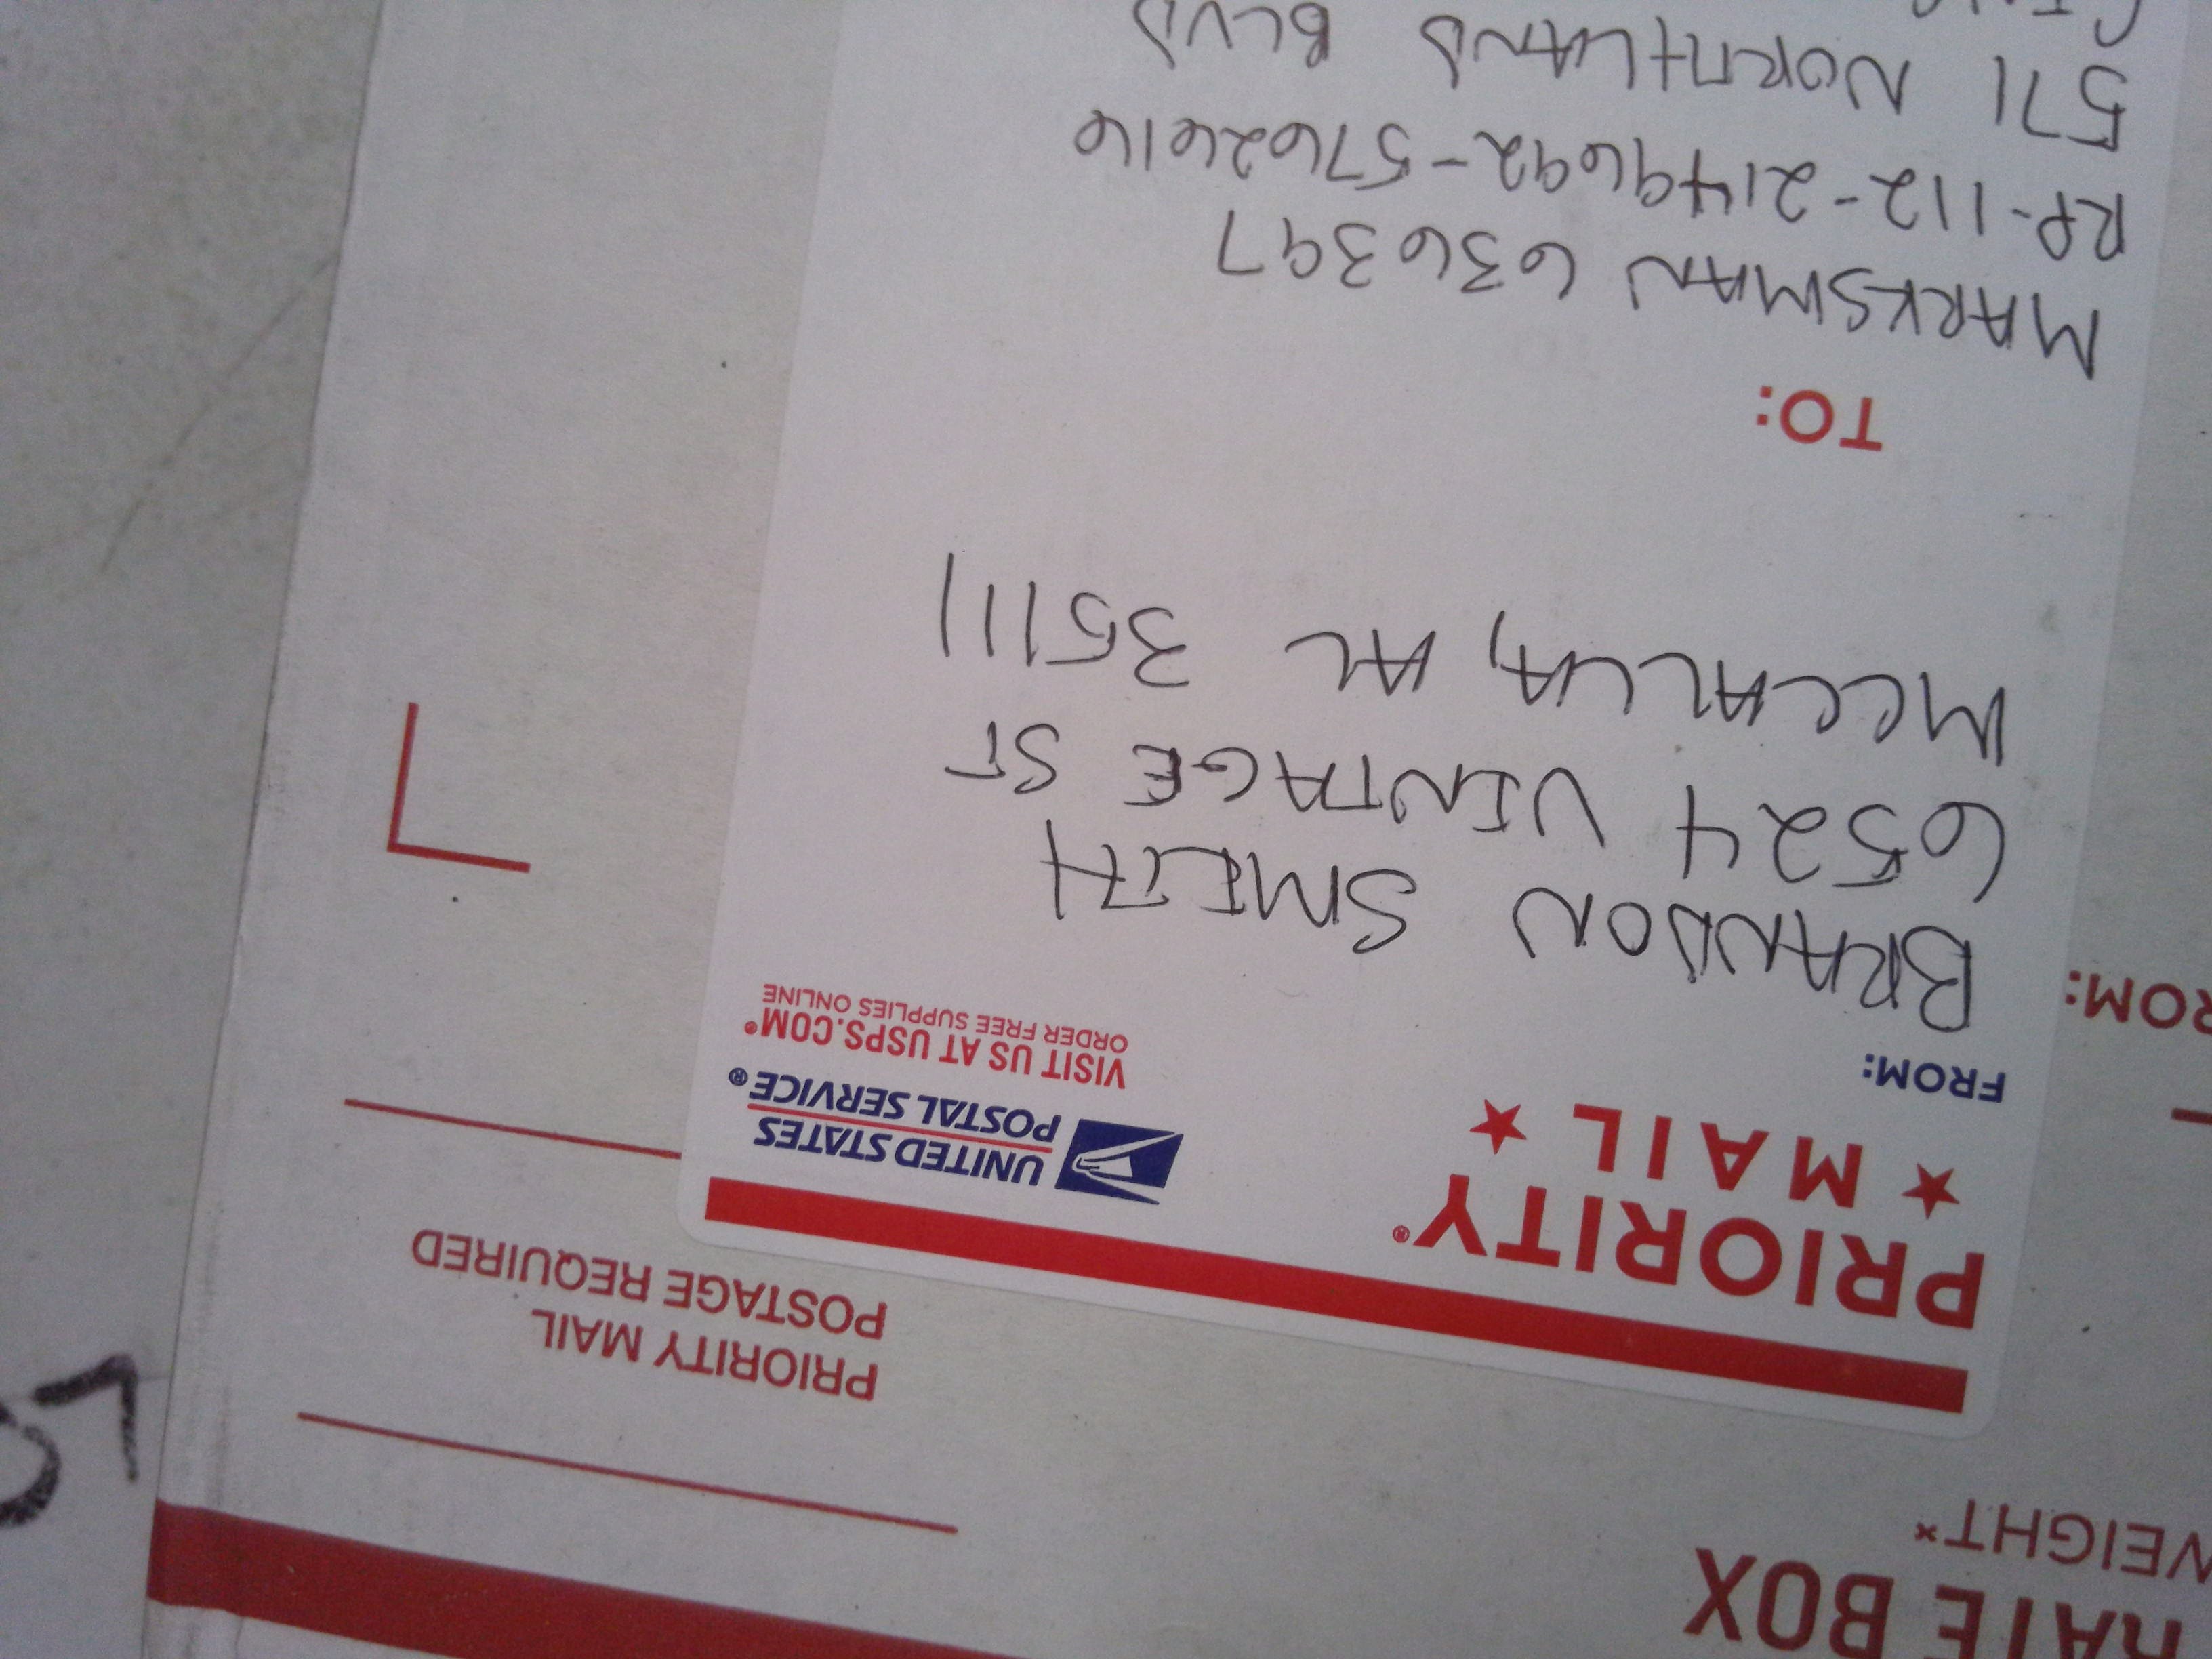 RATE BOX
WEIGHT*
PRIORITY MAIL
POSTAGE REQUIRED
PRIORITY®
★ MAIL ★
UNITED STATES
POSTAL SERVICE®
VISIT US AT USPS.COM®
ORDER FREE SUPPLIES ONLINE
FROM:
ROM:
BRANDON SMITH
6524 VINTAGE ST
MCCALLA, AL 35111
TO:
MARKSMAN 636397
RP-112-21496692-57626616
571 NORTHLAND BLVD